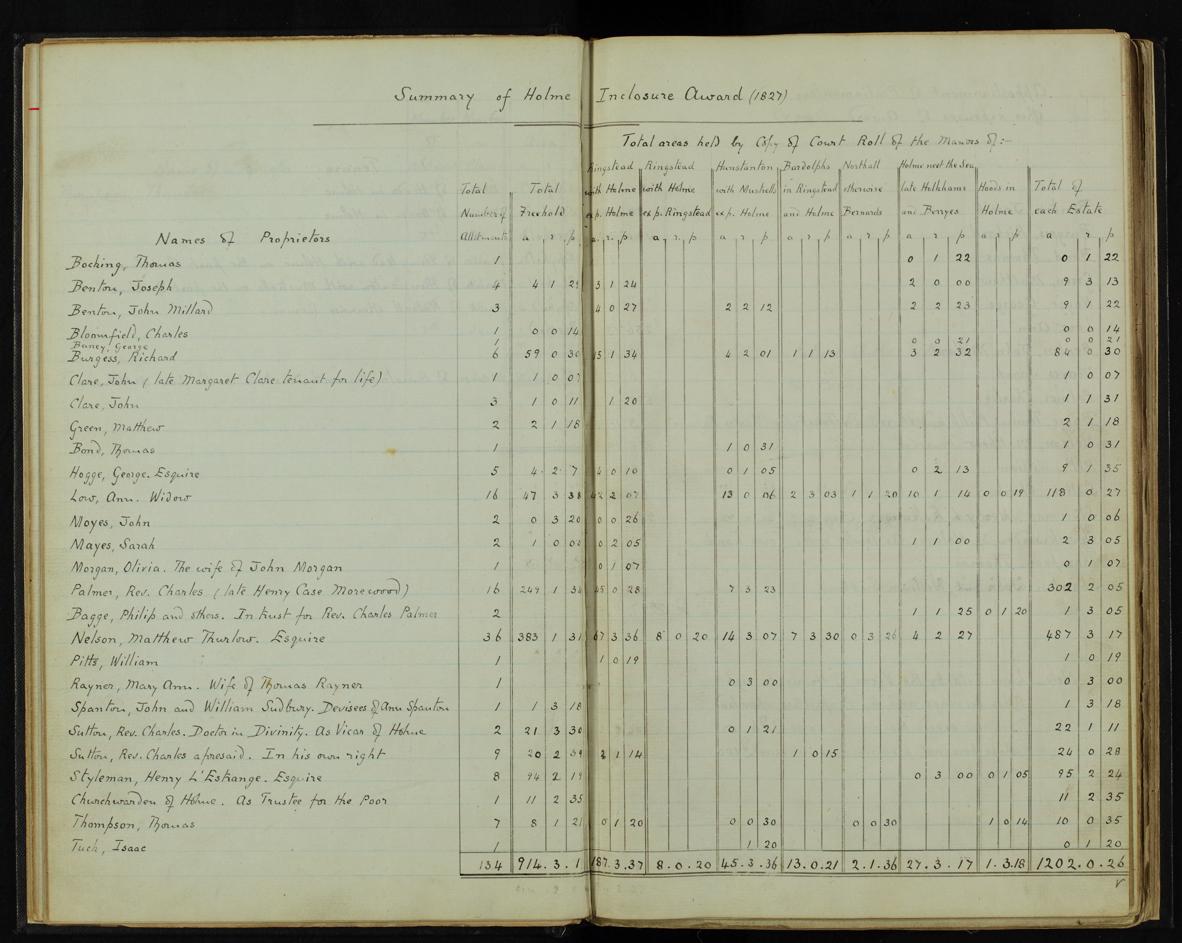 Summary of Holme Inclosure Award (1827)
Total areas held by Copy of Court Roll of the Manors of:-
Ringstead Ringstead Hunstanton Bardolphs Northall Holme next the Sea
Total Total with Holme with Holme with Mustrells in Ringstead otherwise late Holkhams Hoods in Total of
Number of Freehold exp. Holme exp. Ringstead exp. Holme and Holme Bernards and Berryes Holme each Estate
Names of Proprietors Allotments a. r. p. a. r. p. a. r. p. a. r. p. a. r. p. a. r. p. a. r. p. a. r. p. a r p
Bocking, Thomas 1 0 1 22 0 1 22
Benton, Joseph 4 4 1 29 3 1 24 2 0 00 9 3 13
Benton, John Millard 3 4 0 27 2 2 12 2 2 23 9 1 22
Bloomfield, Charles 1 0 0 14 0 0 14
Buney, George 1 0 0 21 0 0 21
Burgess, Richard 6 59 0 30 15 1 34 4 2 01 1 1 13 3 2 32 84 0 30
Clare, John (late Margaret Clare tenant for life) 1 1 0 07 1 0 07
Clare, John 3 1 0 11 1 20 1 1 31
Green, Matthew 2 2 1 18 2 1 18
Bond, Thomas 1 1 0 31 1 0 31
Hogge, George. Esquire 5 4 2 7 4 0 10 0 1 05 0 2 13 9 1 35
Low, Ann. Widow 16 47 3 38 42 2 07 13 0 06 2 3 03 1 1 20 10 1 14 0 0 19 118 0 27
Moyes, John 2 0 3 20 0 0 26 1 0 06
Mayes, Sarah 2 1 0 00 0 2 05 1 1 00 2 3 05
Morgan, Olivia. The wife of John Morgan 1 0 1 07 0 1 07
Palmer, Rev. Charles (late Henry Case Morewood) 16 249 1 34 45 0 28 7 3 23 302 2 05
Bagge, Philip and others. In trust for Rev. Charles Palmer 2 1 1 25 0 1 20 1 3 05
Nelson, Matthew Thurlow. Esquire 36 383 1 31 67 3 36 8 0 20 14 3 07 7 3 30 0 3 26 4 2 27 487 3 17
Pitts, William 1 1 0 19 1 0 19
Rayner, Mary Ann. Wife of Thomas Rayner 1 0 3 00 0 3 00
Spanton, John and William Sudbury. Devisees of Ann Spanton 1 1 3 18 1 3 18
Sutton, Rev. Charles. Doctor in Divinity. As Vicar of Holme 2 21 3 30 0 1 21 22 1 11
Sutton, Rev. Charles aforesaid. In his own right 9 20 2 39 2 1 14 1 0 15 24 0 28
Styleman, Henry L'Estrange. Esquire 8 94 2 19 0 3 00 0 1 05 95 2 24
Churchwarden of Holme. As Trustee for the Poor 1 11 2 35 11 2 35
Thompson, Thomas 7 8 1 21 0 1 20 0 0 30 0 0 30 1 0 14 10 0 35
Tuck, Isaac 1 1 20 0 1 20
134 914.3.1 187.3.37 8.0.20 45.3.36 13.0.21 2.1.36 27.3.17 1.3.18 1202.0.26